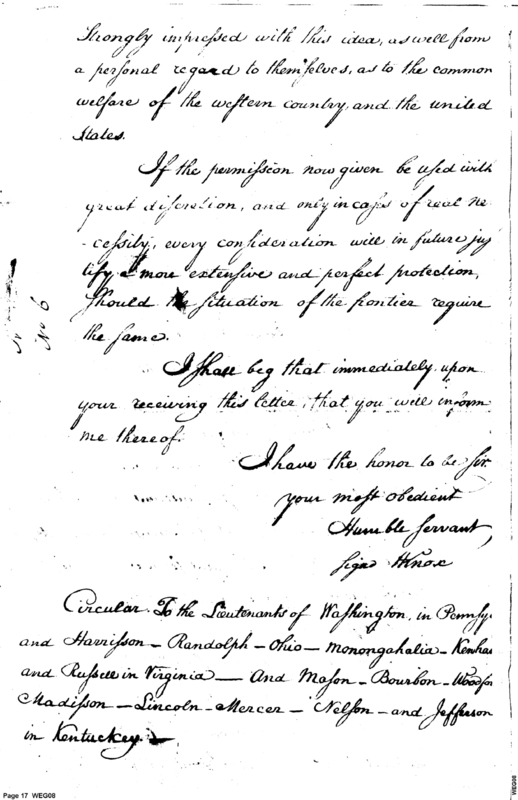 Strongly impressed with this idea, as well from
a personal regard to themselves, as to the common
welfare of the western country, and the united
States.
If the permission now given be used with
great discretion, and only in cases of real ne
-cessity, every consideration will in future jus
tify a more extensive and perfect protection,
Should the situation of the frontier require
the same.
I shall beg that immediately upon
your receiving this letter, that you will inform
me thereof.
I have the honor to be Sir.
your most obedient
Humble servant,
signd HKnox
No 6
Circular To the Lieutenants of Washington, in Pennsy.
and Harrisson — Randolph — Ohio — Monongahalia — Kenhaa
and Russell in Virginia — And Mason — Bourbon — Woodfor
Madisson — Lincoln — Mercer — Nelson — and Jefferson
in Kentuckey —
Page 17 WEG08
WEG08